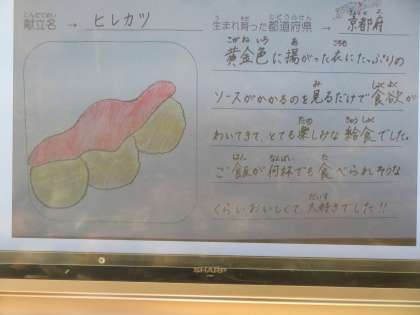 献立名 → ヒレカツ
生まれ育った都道府県 → 京都府
黄金色に揚がった衣にたっぷりの
ソースがかかるのを見るだけで食欲が
わいてきて、とても楽しみな給食でした。
ご飯が何杯でも食べられそうな
くらいおいしくて、大好きでした!!
SHARP